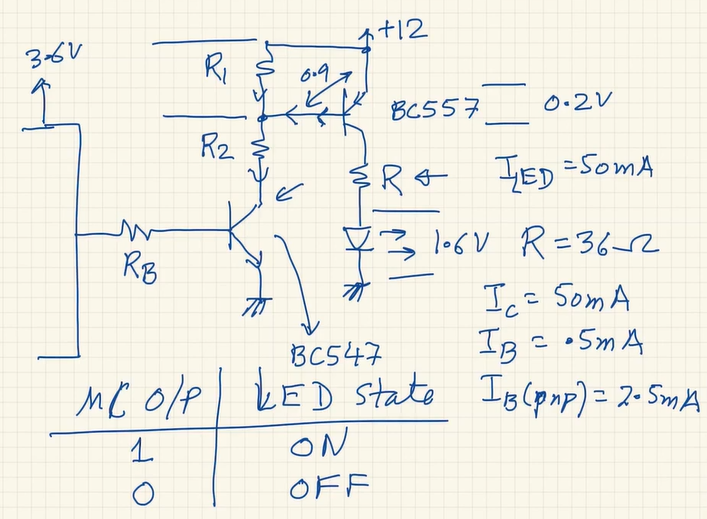 +12
3.6V
R1
0.9
BC557
0.2V
R2
R
ILED = 50mA
1.6V
R = 36Ω
RB
IC = 50mA
IB = .5mA
BC547
IB(pnp) = 2.5mA
MC O/P LED State
1 ON
0 OFF